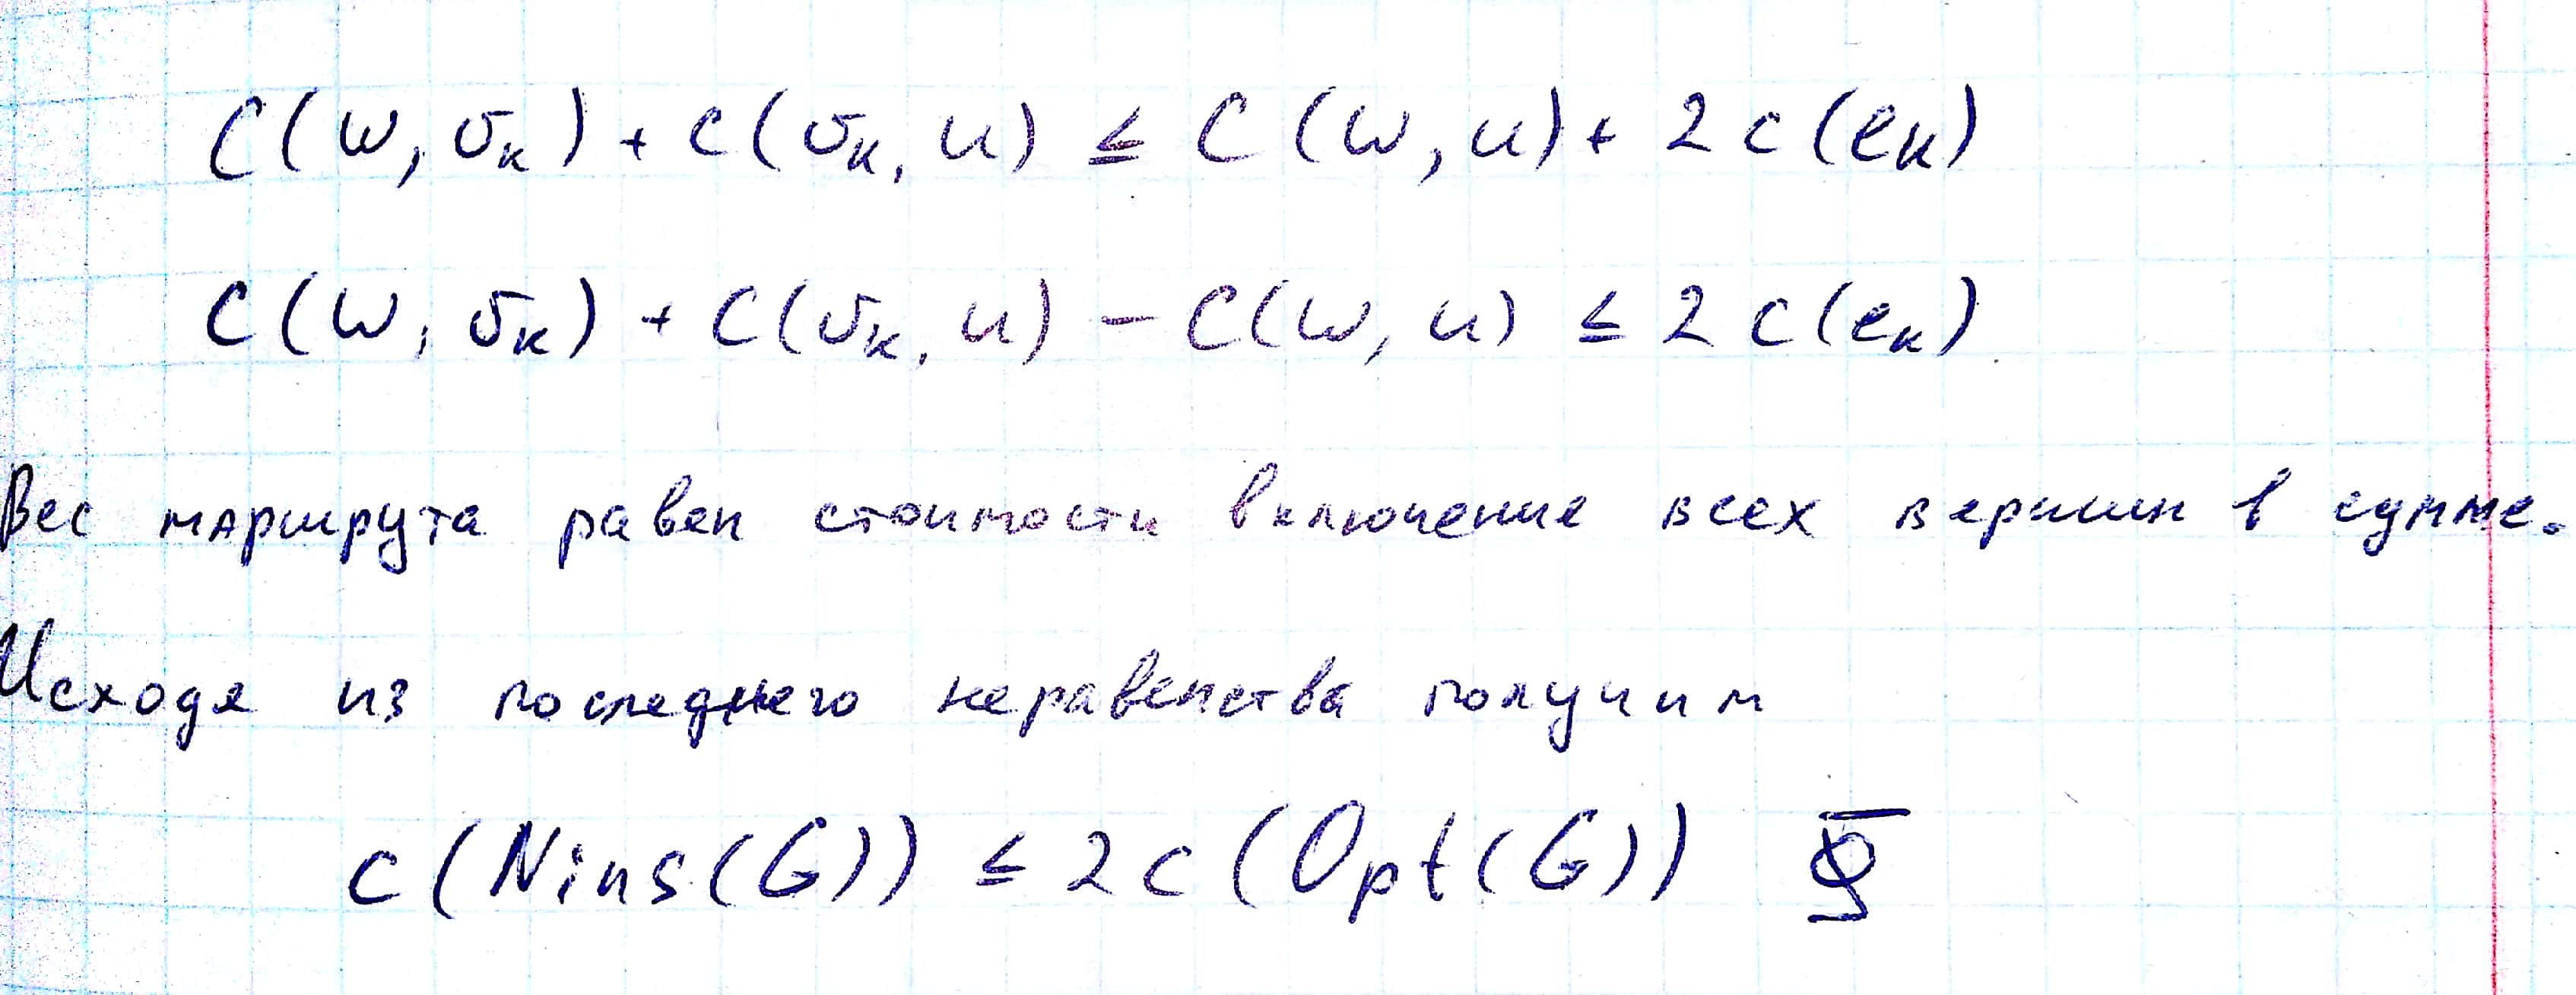 C(w, σₖ) + c(σₖ, u) ≤ C(w, u) + 2c(eₖ)
C(w, σₖ) + C(σₖ, u) − C(w, u) ≤ 2c(eₖ)
Вес маршрута равен стоимости включение всех вершин в сумме.
Исходя из последнего неравенства получим
c(Nins(G)) ≤ 2c(Opt(G))